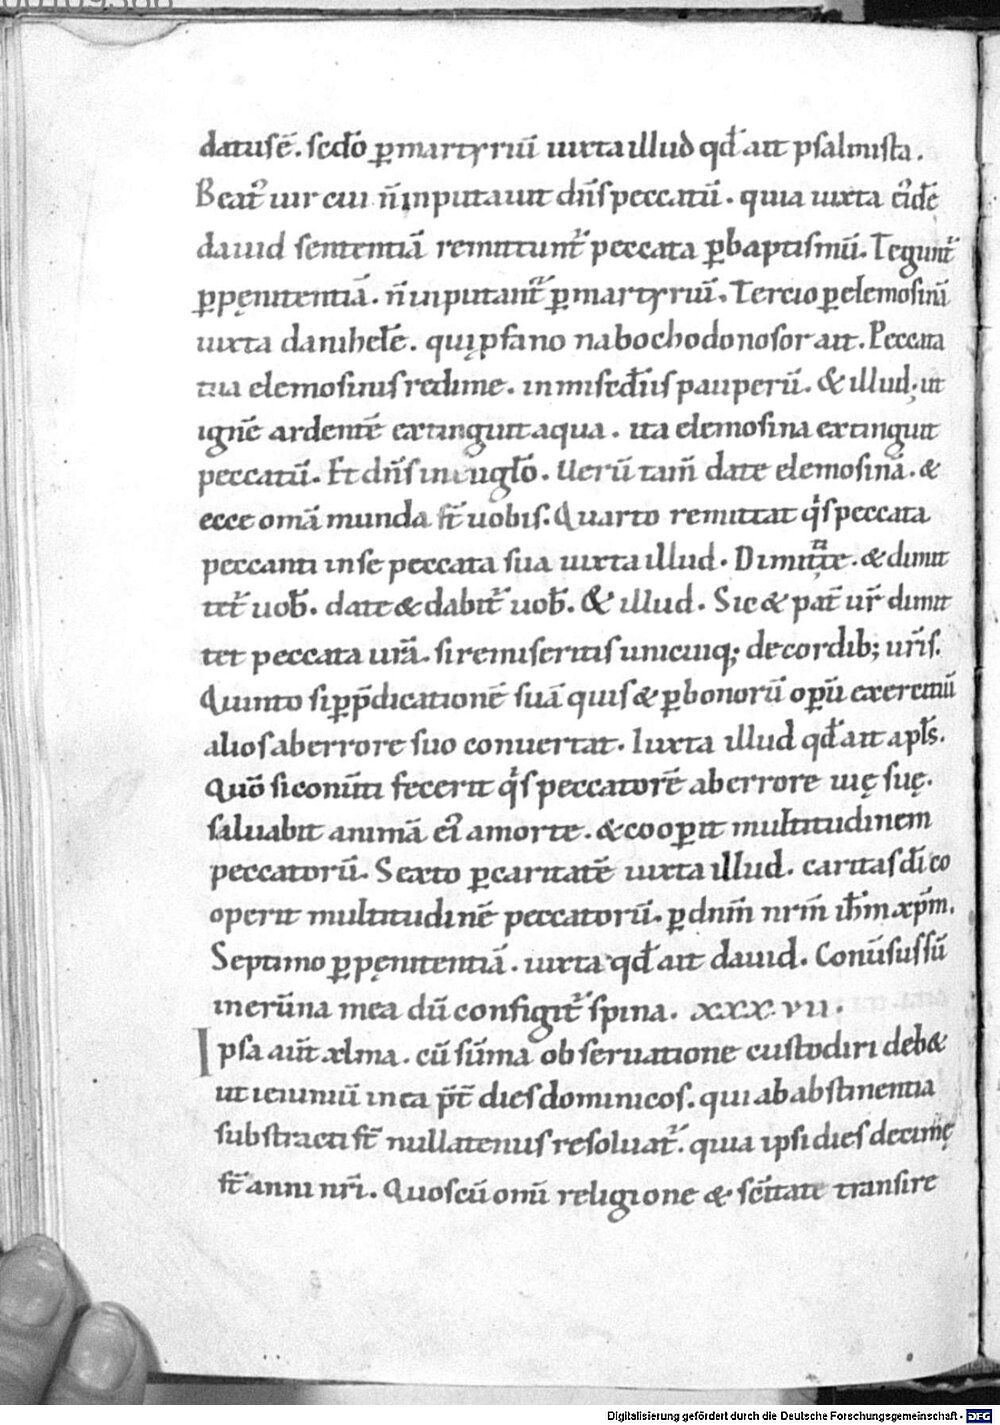 datusē. sedo ꝑ martyriū iuxta illud qđ ait psalmista.
Beat᷒ uir cui n̄ inputauit dn̄s peccatū. quia iuxta ei᷒dē
dauid sententiā remittunt᷑ peccata ꝑ baptismū. Tegunt᷑
ꝑ pęnitentiā. n̄ inputant᷑ ꝑ martyriū. Tercio ꝑ elemosinā
iuxta danihelē. qui ꝓfano nabochodonosor ait. Peccata
tua elemosinis redime. in misēdiis pauperū. & illud. ut
ignē ardentē extinguit aqua. ita elemosina extinguit
peccatū. Et dn̄s in euglo. Uerū tam̄ date elemosinā. &
ecce omā munda st̄ uobis. Quarto remittat qis peccata
peccanti in se peccata sua iuxta illud. Dimittite. & dimit
tet᷑ uob̄. date & dabit᷑ uob̄. & illud. Sic & pat̄ ur̄ dimit
tet peccata ur̄a. si remiseritis unicuiq; de cordib; ur̄is.
Quinto si ꝑ p̄dicationē suā quis & ꝑ bonorū oꝑū exercitiū
alios ab errore suo conuertat. Iuxta illud qđ ait apl̄s.
Quō si conūti fecerit qis peccatorē ab errore uię suę.
saluabit animā ei᷒ a morte. & cooꝑit multitudinem
peccatorū. Sexto ꝑ caritatē iuxta illud. caritas dī co
operit multitudinē peccatorū. ꝑ dn̄m nr̄m ih̄m xp̄m.
Septimo ꝑ pęnitentiā. iuxta qđ ait dauid. Conūsus sū
in erūna mea dū configit᷑ spina. xxx.vii.
Ipsa aūt xlma. cū sūma obseruatione custodiri deb&
ut ieiuniū in ea p̄t̄ dies dominicos. qui ab abstinentia
substracti st̄ nullatenus resoluat᷑. quia ipsi dies decimę
st̄ anni nr̄i. Quos cū om̄i religione & sc̄itate transire
Digitalisierung gefördert durch die Deutsche Forschungsgemeinschaft - DFG